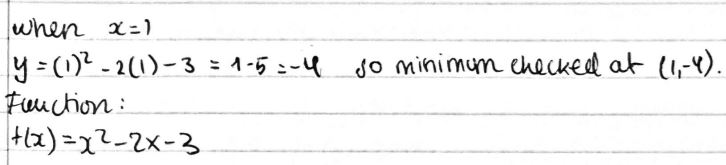 when x=1
y = (1)² - 2(1) - 3 = 1-5 = -4 so minimum checked at (1,-4).
Function:
f(x) = x² - 2x - 3